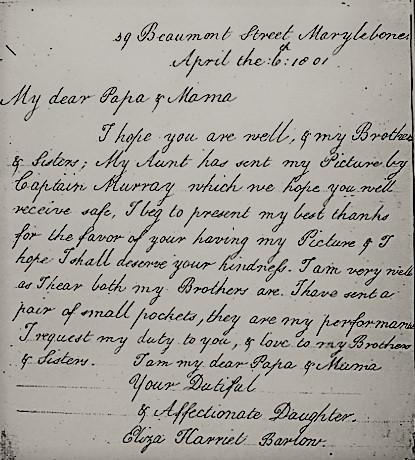 29 Beaumont Street Marylebone
April the: 6th: 1801
My dear Papa & Mama
I hope you are well, & my Brothers
& Sisters; My Aunt has sent my Picture by
Captain Murray which we hope you will
receive safe, I beg to present my best thanks
for the favor of your having my Picture & I
hope I shall deserve your kindness. I am very well
as I hear both my Brothers are. I have sent a
pair of small pockets, they are my performance
I request my duty to you, & love to my Brothers
& Sisters. I am my dear Papa & Mama
Your Dutiful
& Affectionate Daughter.
Eliza Harriet Barlow.